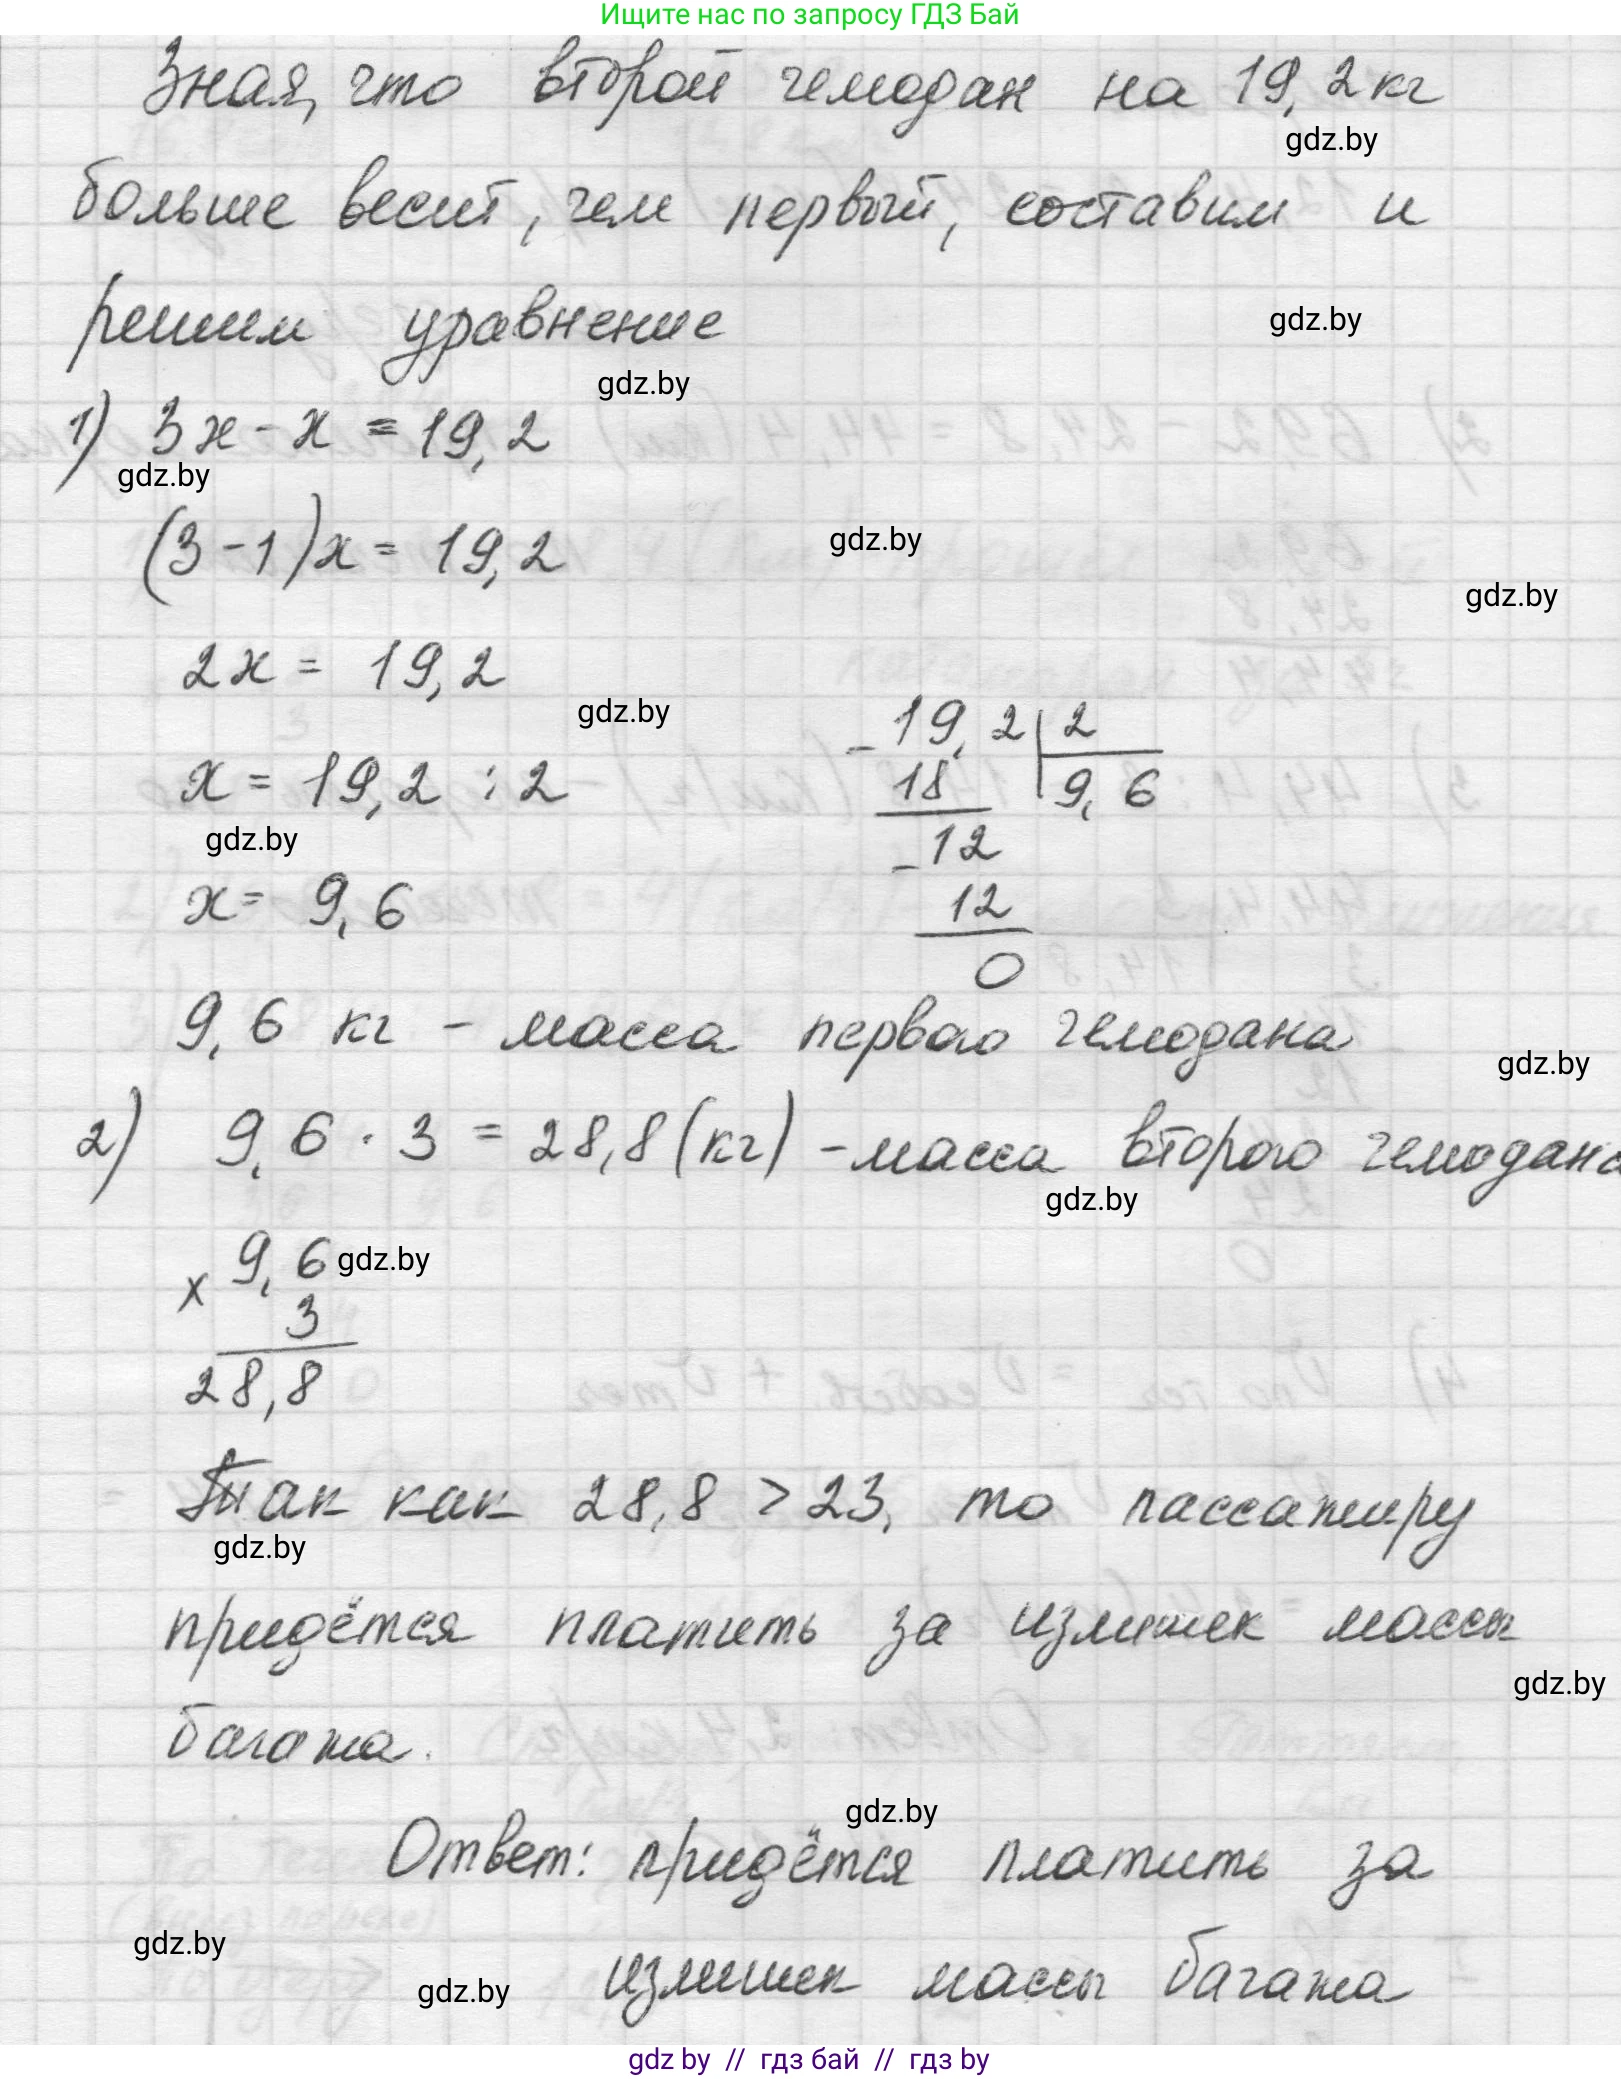 Ищите нас по запросу ГДЗ Бай
Зная, что второй чемодан на 19,2 кг
gdz.by
больше весит, чем первый, составим и
решим уравнение
gdz.by
gdz.by
1) 3x - x = 19,2
gdz.by
(3 - 1)x = 19,2
gdz.by
gdz.by
2x = 19,2
gdz.by
19,2 | 2
x = 19,2 : 2
18 9,6
gdz.by
- 12
x = 9,6
12
0
9,6 кг - масса первого чемодана
gdz.by
2) 9,6 · 3 = 28,8 (кг) - масса второго чемодана
gdz.by
x 9,6
gdz.by
3
28,8
Так как 28,8 > 23, то пассажиру
gdz.by
придётся платить за излишек массы
gdz.by
багажа.
gdz.by
Ответ: придётся платить за
gdz.by
излишек массы багажа
gdz.by
gdz by // гдз бай // гдз by